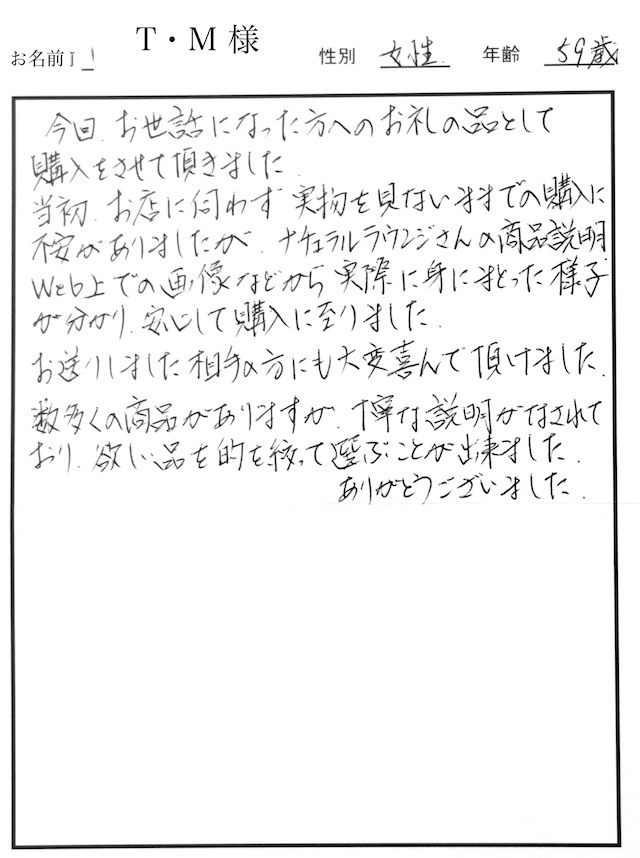 お名前 T・M 様 性別 女性 年齢 59歳
今回、お世話になった方へのお礼の品として
購入をさせて頂きました。
当初、お店に伺わず実物を見ないままでの購入に
不安がありましたが、ナチュラルラウンジさんの商品説明
Web上での画像などから実際に身にまとった様子
が分かり、安心して購入に至りました。
お送りしました相手の方にも大変喜んで頂けました。
数多くの商品がありますが、丁寧な説明がなされて
おり、欲しい品を的を絞って選ぶことが出来ました。
ありがとうございました。